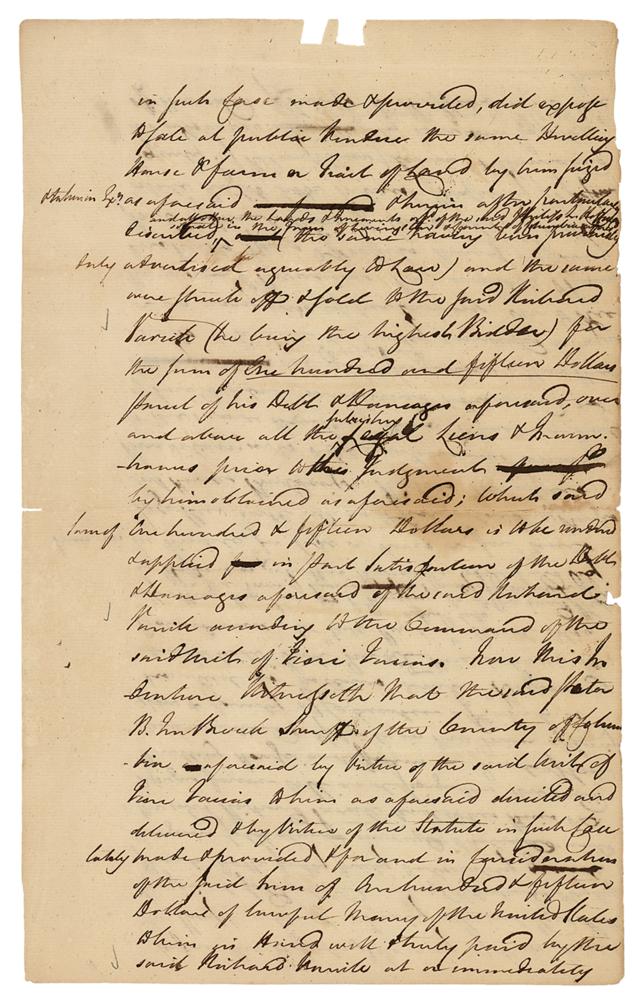 in such Case made & provided, did expose
to sale at public Vendue the same Dwelling
House & farm or Tract of Land by him seized
as aforesaid & herein after particularly
and all other the lands & tenements of the said
described, (the same having been previously
duly advertised agreeably to Law) and the same
were struck off & sold to the said Richard
(he being the highest Bidder) for
the sum of One hundred and fifteen Dollars
parcel of his Debt & Damages aforesaid, over
subsisting
and above all the legal Liens & Incum-
-brances prior to the Judgment
by him obtained as aforesaid; which said
sum of One hundred & fifteen Dollars is to be
& applied in part Satisfaction of the Debt
& Damages aforesaid of the said Richard
according to the Command of the
said Writ of Fieri Facias. Now this In-
-denture Witnesseth that the said Peter
B. Ten Broeck Sheriff of the County of Colum
-bia aforesaid by virtue of the said Writ of
Fieri Facias to him as aforesaid directed and
delivered & by Virtue of the Statute in such Case
lately made & provided & for and in Consideration
of the said sum of One hundred & fifteen
Dollars of lawful Money of the United States
to him in Hand well & truly paid by the
said Richard at or immediately